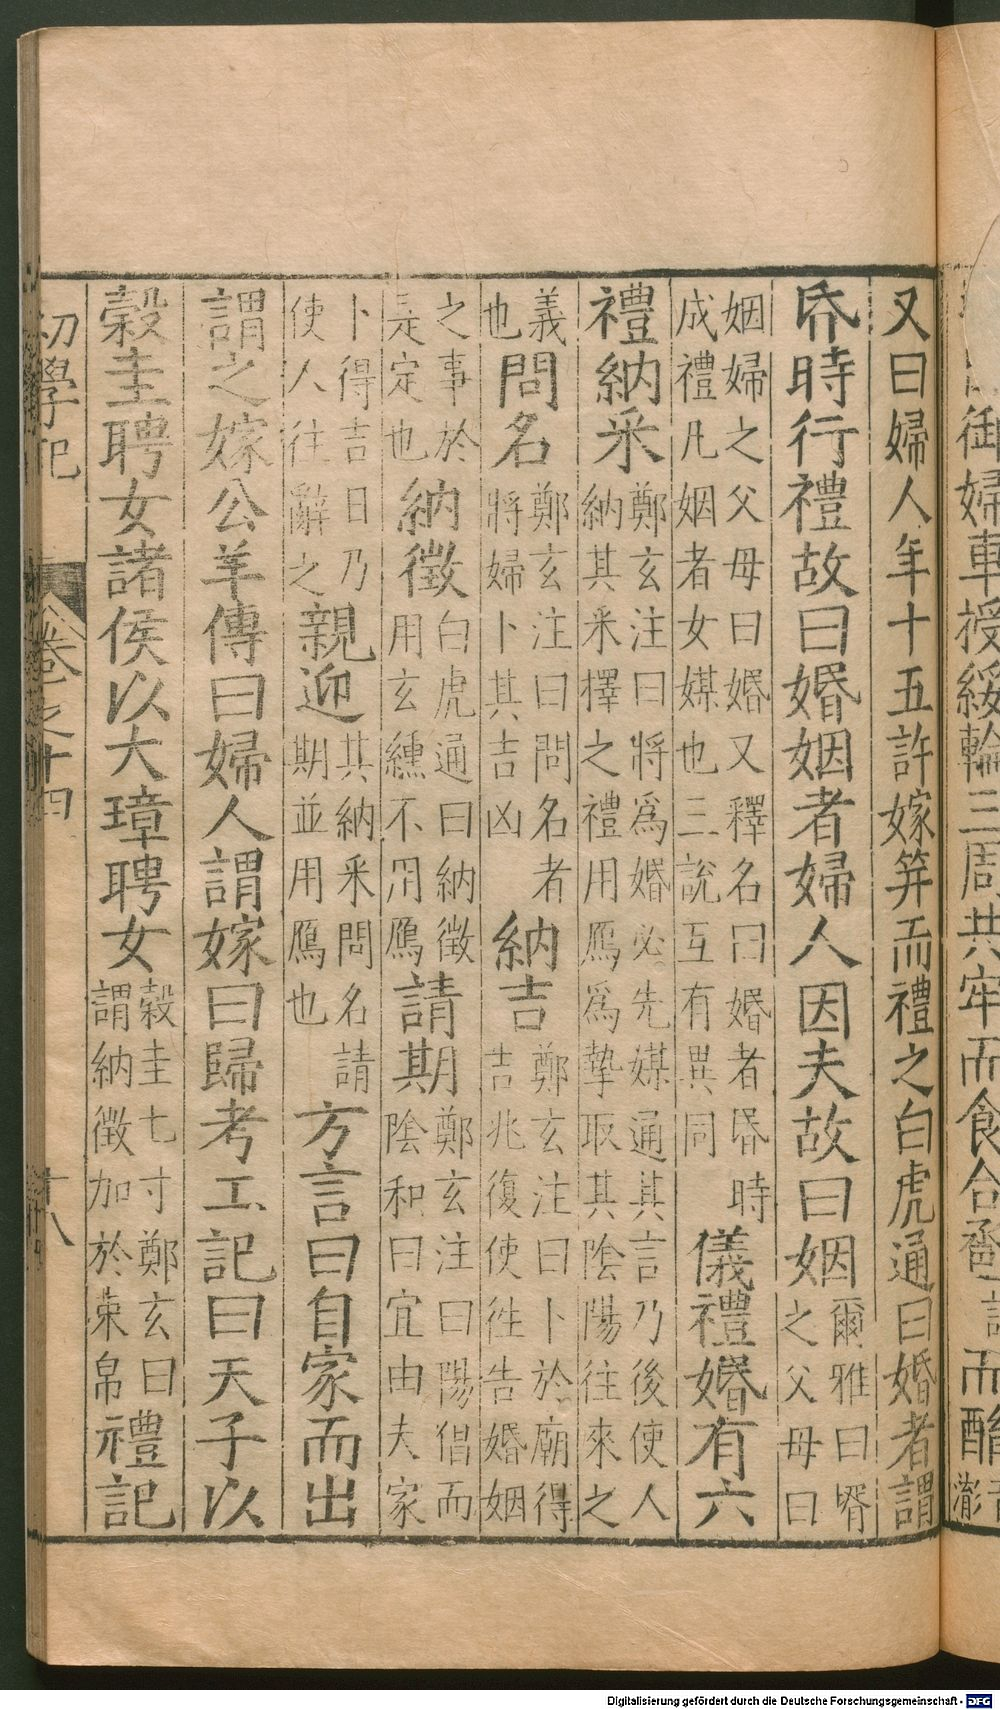 御婦車授綏輪三周共牢而食合巹
又曰婦人年十五許嫁筓而禮之白虎通曰婚者謂
昬時行禮故曰婚姻者婦人因夫故曰姻爾雅曰壻之父母曰
姻婦之父母曰婚又釋名曰婚者昬時成禮凡姻者女媒也三說互有異同儀禮婚有六
禮納采鄭玄注曰將爲婚必先媒通其言乃後使人納其采擇之禮用鴈爲摯取其陰陽往來之
義也問名鄭玄注曰問名者將婦卜其吉凶納吉鄭玄注曰卜於廟得吉兆復使徃告婚姻
之事於是定也納徵白虎通曰納徵用玄纁不用鴈請期鄭玄注曰陽倡而陰和曰宜由夫家
卜得吉日乃使人往辭之親迎其納采問名請期並用鴈也方言曰自家而出
謂之嫁公羊傳曰婦人謂嫁曰歸考工記曰天子以
穀圭聘女諸侯以大璋聘女穀圭七寸鄭玄曰謂納徵加於束帛禮記
初學記 卷之十四 十八
Digitalisierung gefördert durch die Deutsche Forschungsgemeinschaft - DFG